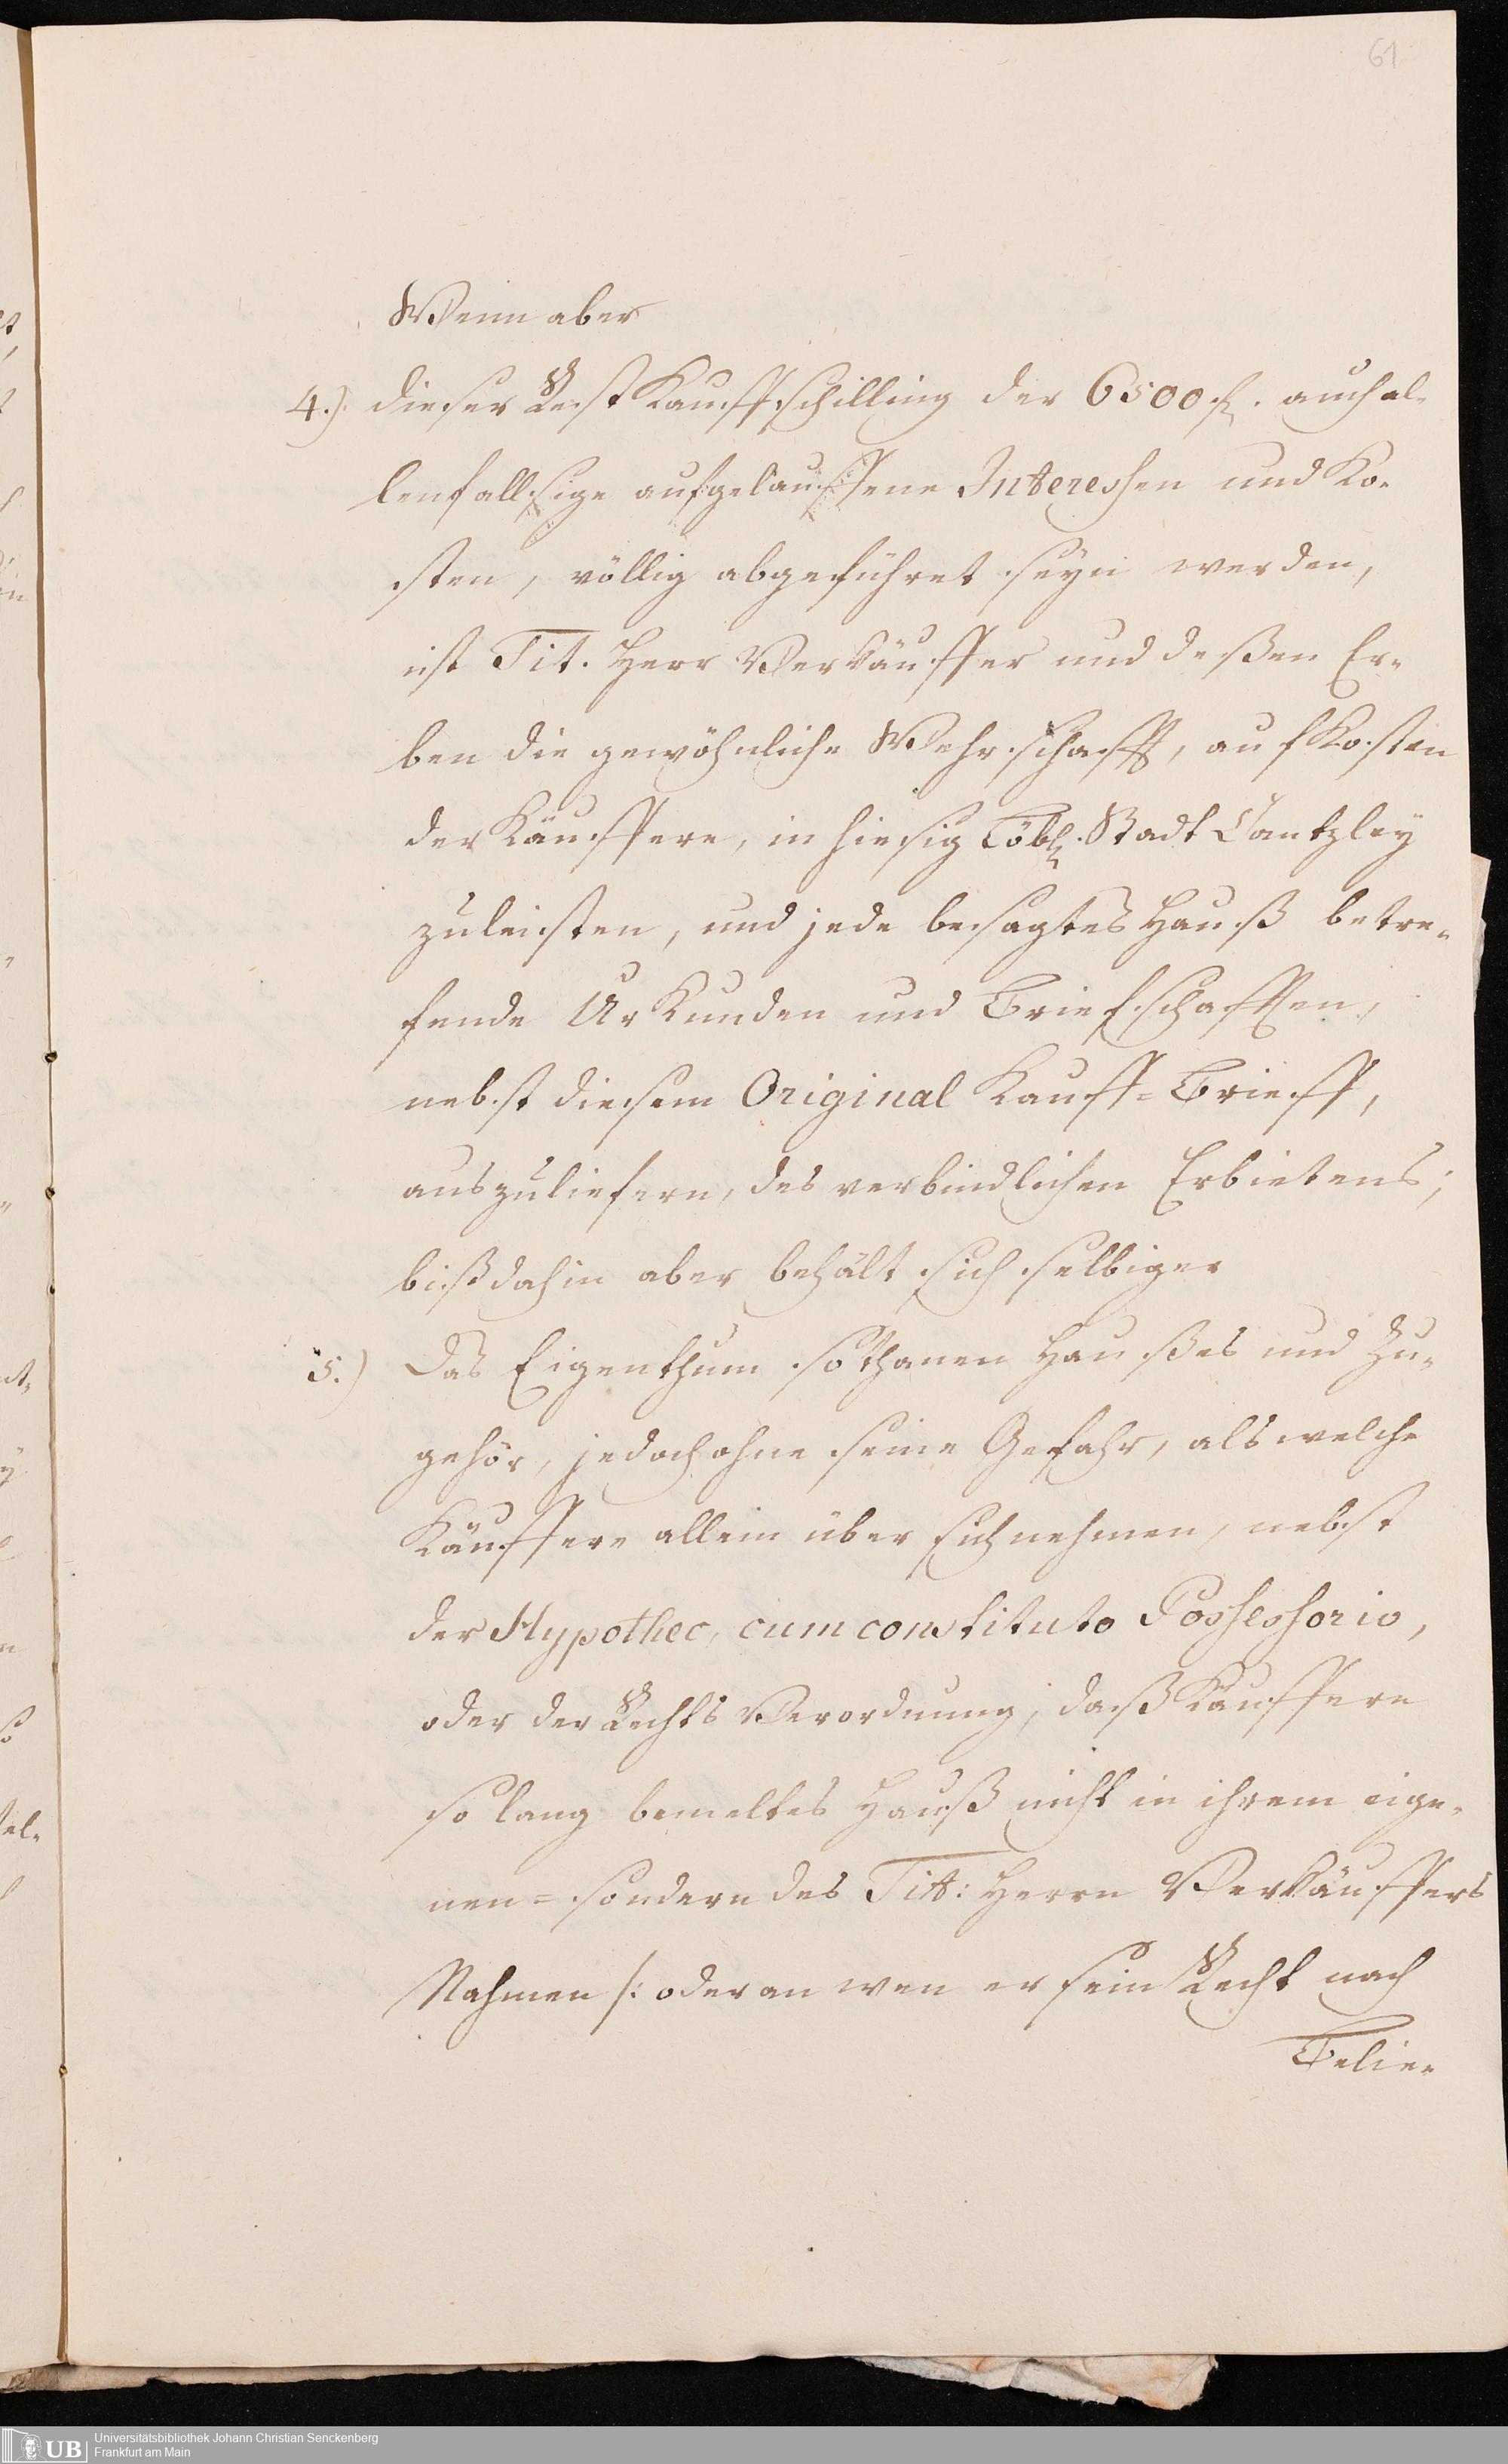 61
Wenn aber
4.) dieser Rest Kauffschilling der 6500 fl. auch al-
lenfallsige aufgelauffene Interessen und Ko-
sten, völlig abgeführet seyn werden,
ist Tit. Herr Verkäuffer und deßen Er-
ben die gewöhnliche Wehrschafft, auf Kosten
der Käuffere, in hiesig Löbl. Stadt Cantzley
zuleisten, und jede besagtes Hauß betre-
fende Urkunden und Briefschafften,
nebst diesem Original Kauff-Brieff,
auszuliefern, des verbindlichen Erbietens;
biß dahin aber behält sich selbiger
5.) Das Eigenthum sothanen Haußes und Zu-
gehör, jedoch ohne seine Gefahr, als welche
Käuffere allein über sich nehmen, nebst
der Hypothec, cum constituto Possessorio,
oder der Rechts Verordnung, daß Käuffere
so lang bemeltes Hauß nicht in ihrem eige-
nen- sondern des Titt: Herrn Verkäuffers
Nahmen /: oder an wen er sein Recht nach
Belie-
UB
Universitätsbibliothek Johann Christian Senckenberg
Frankfurt am Main